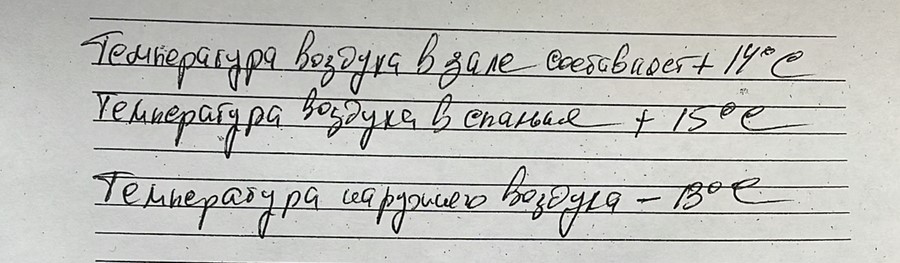 Температура воздуха в зале составляет + 14°С
Температура воздуха в спальня + 15°С
Температура наружнего воздуха - 13°С